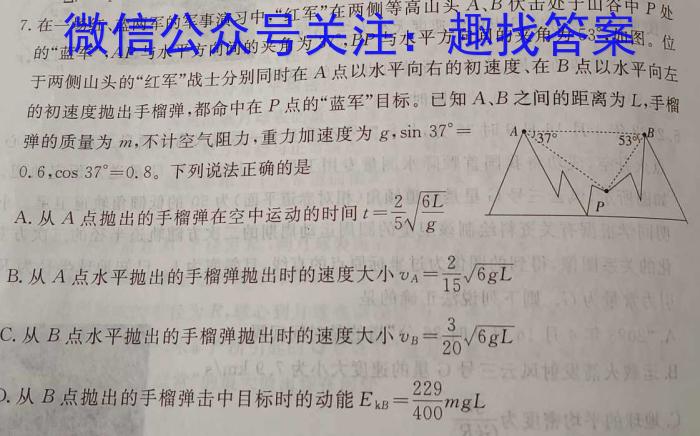 7. 在一 红蓝两军的军事演习中,“红军”在两侧等高山头 A、B 伏击处于山谷中 P 处
微信公众号关注:趣找答案
的“蓝军”,AP 与水平方向间的夹角为 BP 与水平方向间的夹角为 53°,如图。位
于两侧山头的“红军”战士分别同时在 A 点以水平向右的初速度、在 B 点以水平向左
的初速度抛出手榴弹,都命中在 P 点的“蓝军”目标。已知 A、B 之间的距离为 L,手榴
弹的质量为 m,不计空气阻力,重力加速度为 g,sin 37°=
0.6,cos 37°=0.8。下列说法正确的是
A 37° 53° B
P
A. 从 A 点抛出的手榴弹在空中运动的时间 t=2/5√(6L/g)
B. 从 A 点水平抛出的手榴弹抛出时的速度大小 vA=2/15√6gL
C. 从 B 点水平抛出的手榴弹抛出时的速度大小 vB=3/20√6gL
D. 从 B 点抛出的手榴弹击中目标时的动能 EkB=229/400 mgL